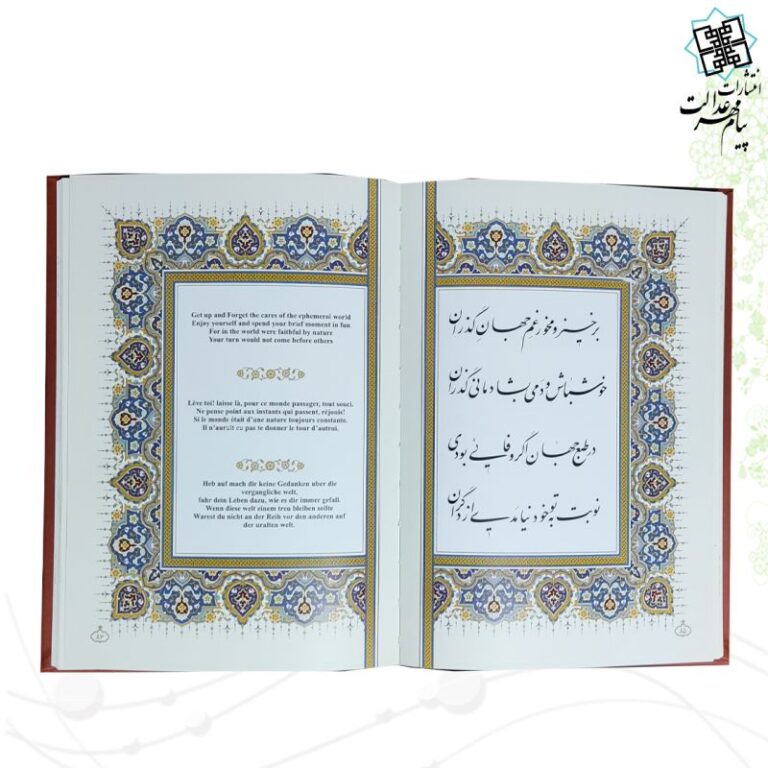 انتشارات
پیام مهر عدالت
برخیز و مخور غم جهان گذران
خوش باش و دمی بشادمانی گذران
در طبع جهان اگر وفایی بودی
نوبت به تو خود نیامدی از دگران
۸۵
Get up and Forget the cares of the ephemeroi world
Enjoy yourself and spend your brief moment in fun
For in the world were faithful by nature
Your turn would not come before others
Lève toi! laisse là, pour ce monde passager, tout souci.
Ne pense point aux instants qui passent, réjouis!
Si le monde était d'une nature toujours constante.
Il n'aurait eu pas te donner le tour d'autrui.
Heb auf mach dir keine Gedanken uber die
vergangliche welt,
fuhr dein Leben dazu, wie es dir immer gefall.
Wenn diese welt einem treu bleiben sollte
Warest du nicht an der Reih vor den anderen auf
der uralten welt.
۸۶